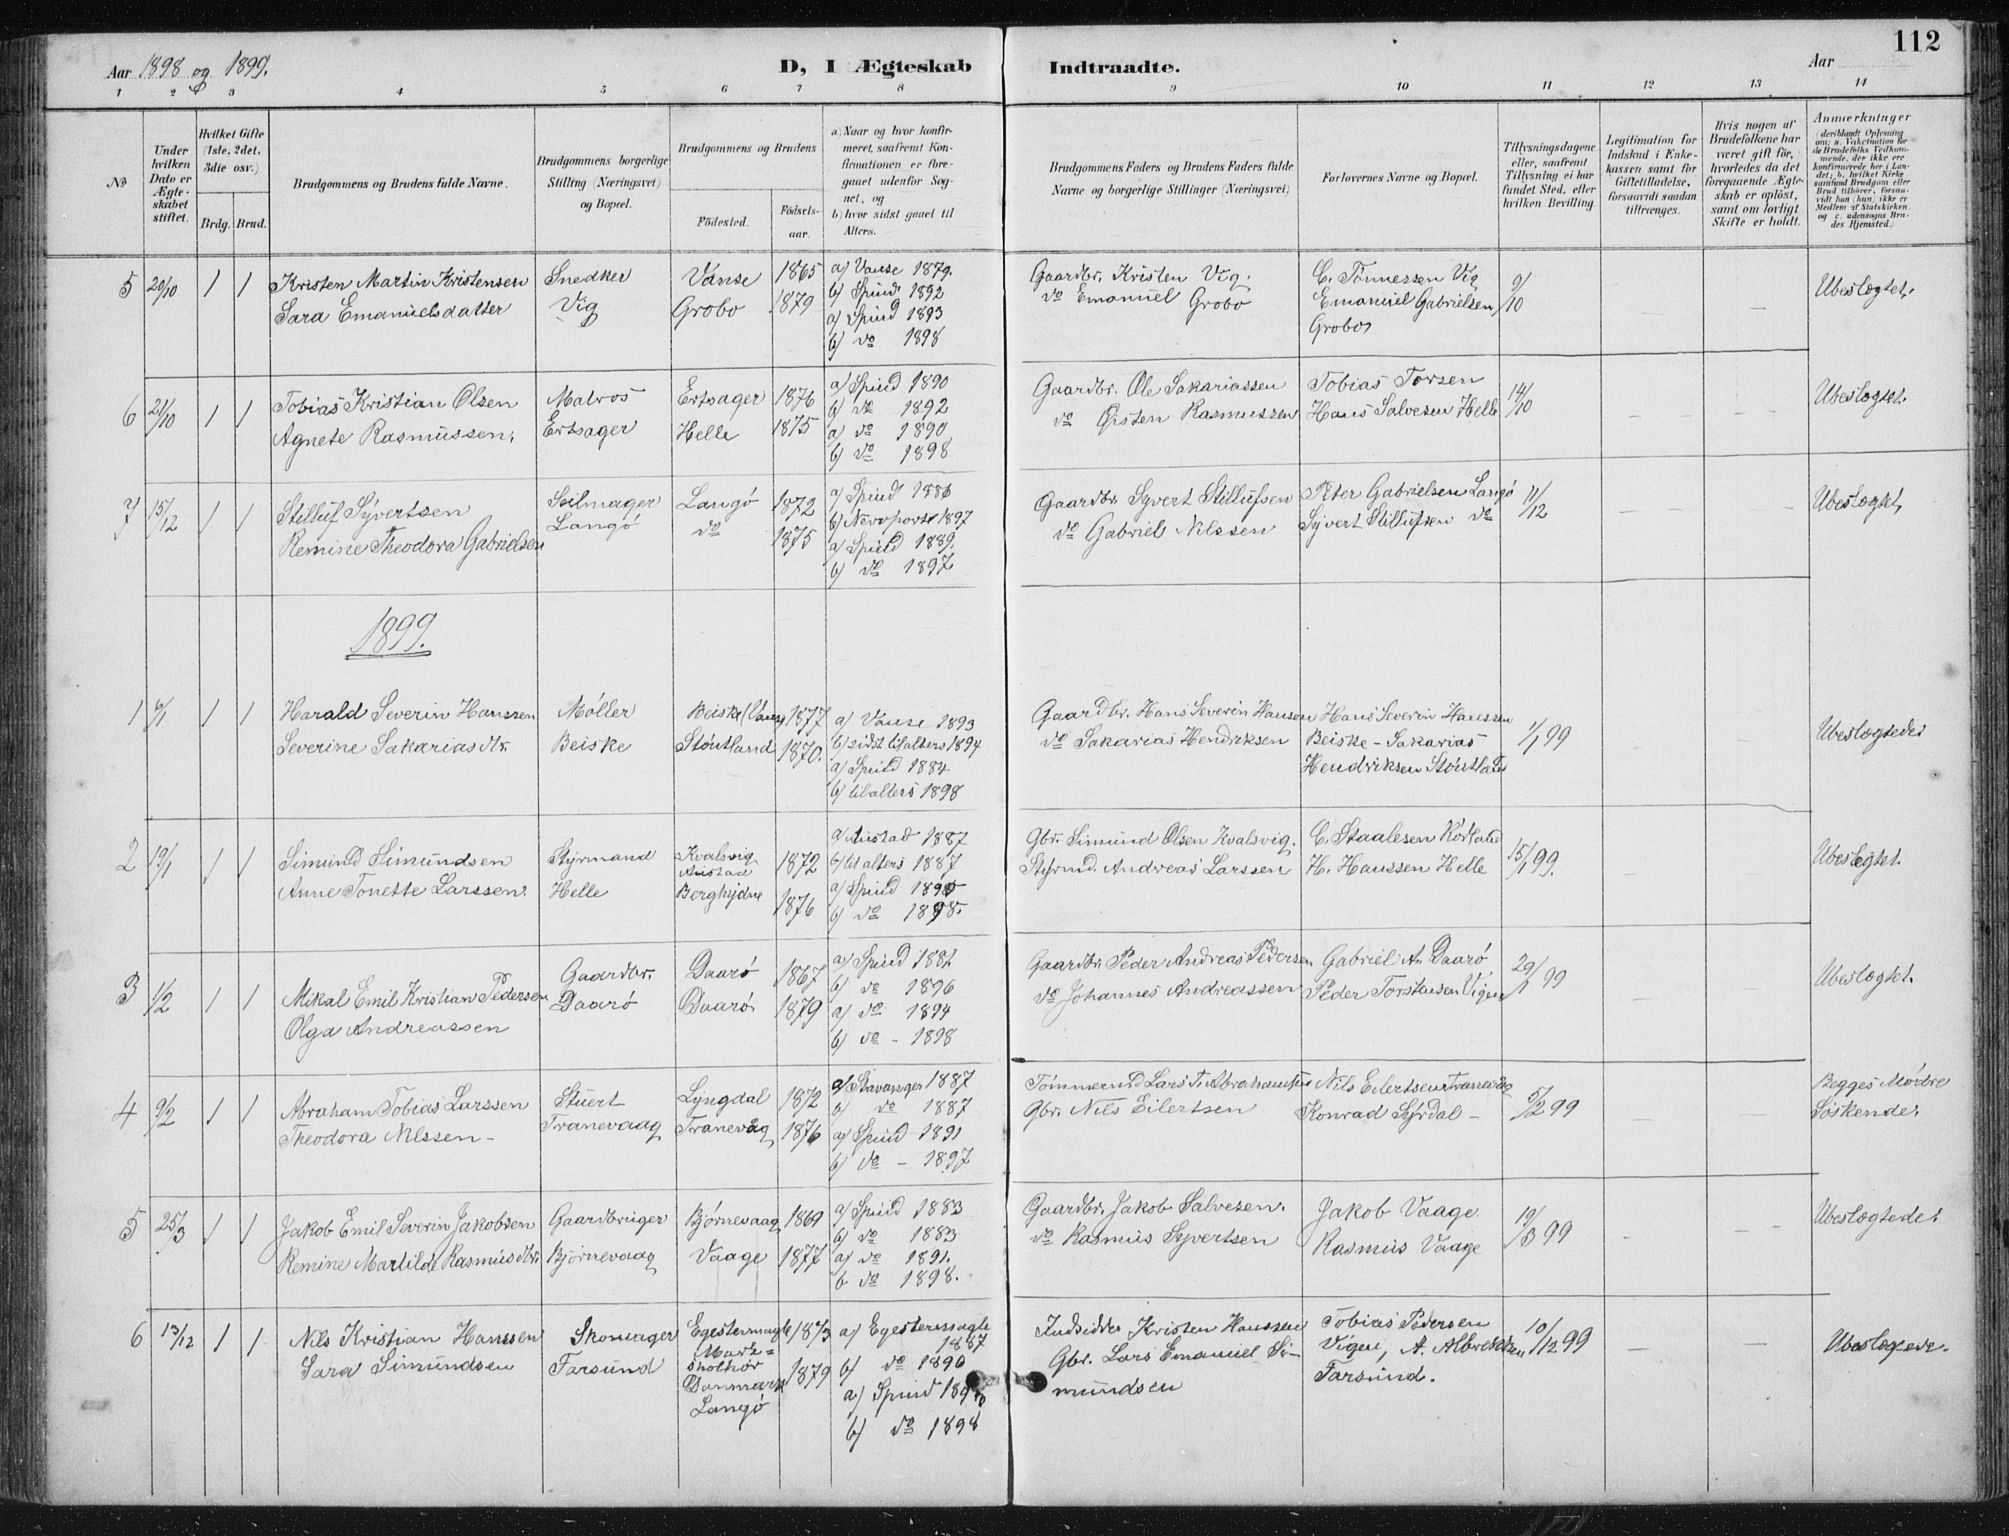 112
Aar 1898 og 1899.
D, I Ægteskab Indtraadte.
Aar
1 2 3 4 5 6 7 8 9 10 11 12 13 14
No
Under hvilken Dato er Ægteskabet stiftet.
Hvilket Gifte (1ste, 2det, 3dte osv.)
Brdg. Brud.
Brudgommens og Brudens fulde Navne.
Brudgommens borgerlige Stilling (Næringsvei) og Bopæl.
Brudgommens og Brudens
Födested.
Födsels-aar.
a) Naar og hvor konfirmeret, saafremt Konfirmationen er foregaaet udenfor Sognet, og
b) hvor sidst gaaet til Alters.
Brudgommens Faders og Brudens Faders fulde Navne og borgerlige Stillinger (Næringsvei)
Forlovernes Navne og Bopæl.
Tillysningsdagene eller, saafremt Tillysning ei har fundet Sted, efter hvilken Bevilling.
Legitimation for Indskud i Enkekassen samt for Giftetilladelse, forsaavidt saadan tiltrænges.
Hvis nogen af Brudefolkene har været gift för, hvorledes da det foregaaende Ægteskab er oplöst, samt om lovligt Skifte er holdt.
Anmærkninger
(deriblandt Oplysning om: a. Vakcination for de Brudefolks Vedkommende, der ikke ere konfirmerede her i Landet; b. hvilket Kirkesamfund Brudgom eller Brud tilhører, forsaavidt han (hun) ikke er Medlem af Statskirken og c. udensogns Brudes Hjemsted.)
5 20/10 1 1 Kristen Martin Kristensen Snedker Vanse 1865 a) Vanse 1879. Gaardbr. Kristen Vig. C. Tönnessen Vig 9/10 Ubeslægtet.
b) Spind 1892
Sara Emanuelsdatter Vig Grobo 1879 a) Spind 1893 do Emanuel Grobo Emanuel Gabrielsen
b) do 1898 Grobo
6 21/10 1 1 Tobias Kristian Olsen Matros Ertsager 1876 a) Spind 1890 Gaardbr. Ole Sakariassen Tobias Torsen 14/10 Ubeslægtet.
b) do 1892
Agnete Rasmussen. Ertsager Helle 1875 a) do 1890 do Örsten Rasmussen Hans Salvesen Helle
b) do 1898
7 15/12 1 1 Stilluf Syvertsen Seilmager Langö 1872 a) Spind 1886 Gaardbr. Syvert Stillufsen Peter Gabrielsen Langö 11/12 Ubeslægtet,
b) Newport 1897
Remine Theodora Gabrielsen Langö do 1875 a) Spind 1889. do Gabriel Nilssen Syvert Stillufsen do
b) do 1897
1899.
1 6/1 1 1 Harald Severin Hanssen Möller Beiske (Vanse) 1877 a) Vanse 1893 Gaardbr. Hans Severin Hansen Hans Severin Hanssen 1/1 99 Ubeslægtede.
b) sidst til alters 1894
Severine Sakariasdtr. Beiske Stöutland 1870. a) Spind 1884 do Sakarias Hendriksen Beiske - Sakarias
b) til alters 1898 Hendriksen Stöutland
2 19/1 1 1 Simund Simundsen Styrmand Kvalsvig Austad 1872 a) Austad 1887 Gbr. Simund Olsen Kvalsvig. C. Staalesen 15/1 99. Ubeslægtet.
b) til alters 1887
Anne Tonette Larssen. Helle 1876 a) Spind 1890 Styrmd. Andreas Larssen H. Hanssen Helle
b) do 1898.
3 1/2 1 1 Mikal Emil Kristian Pedersen Gaardbr. Daarö 1867 a) Spind 1881 Gaardbr. Peder Andreas Pedersen Gabriel A. Daarö 29/1 99 Ubeslægtet.
b) do 1896
Olga Andreassen Daarö Daarö 1879 a) do 1894 do Johannes Andreassen Peder Torstensen Vigen
b) do - 1898
4 9/2 1 1 Abraham Tobias Larssen Stuert Lyngdal 1872 a) Stavanger 1887 Tömmermd Lars T. Abrahamsen Nils Eilertsen Tranevåg 5/2 99 Begges Mödre
b) do 1887
Theodora Nilssen - Tranevaag Tranevåg 1876 a) Spind - 1891 Gbr. Nils Eilertsen Konrad Syrdal - Söskende.
b) do - 1897
5 25/3 1 1 Jakob Emil Severin Jakobsen Gaardbruger Björnevaag 1869 a) Spind 1883 Gaardbr. Jakob Salvesen. Jakob Vaage 19/3 99 Ubeslægtede.
b) do 1883
Remine Martilde Rasmusdtr. Björnevaag Vaage 1877 a) do 1891. do Rasmus Syvertsen Rasmus Vaage
b do 1898.
6 13/12 1 1 Nils Kristian Hanssen Skomager Egestermagle 1873 a) Egestermagle 1887 Indsidder Kristen Hanssen Tobias Pedersen 10/12 99 Ubeslægede.
Danmark b) do 1890
Sara Simundsen Farsund Langö 1879 a) Spind Gbr. Lars Emanuel Si- Vigen, A. Albrektsen
b) do 1898 mundsen Farsund.